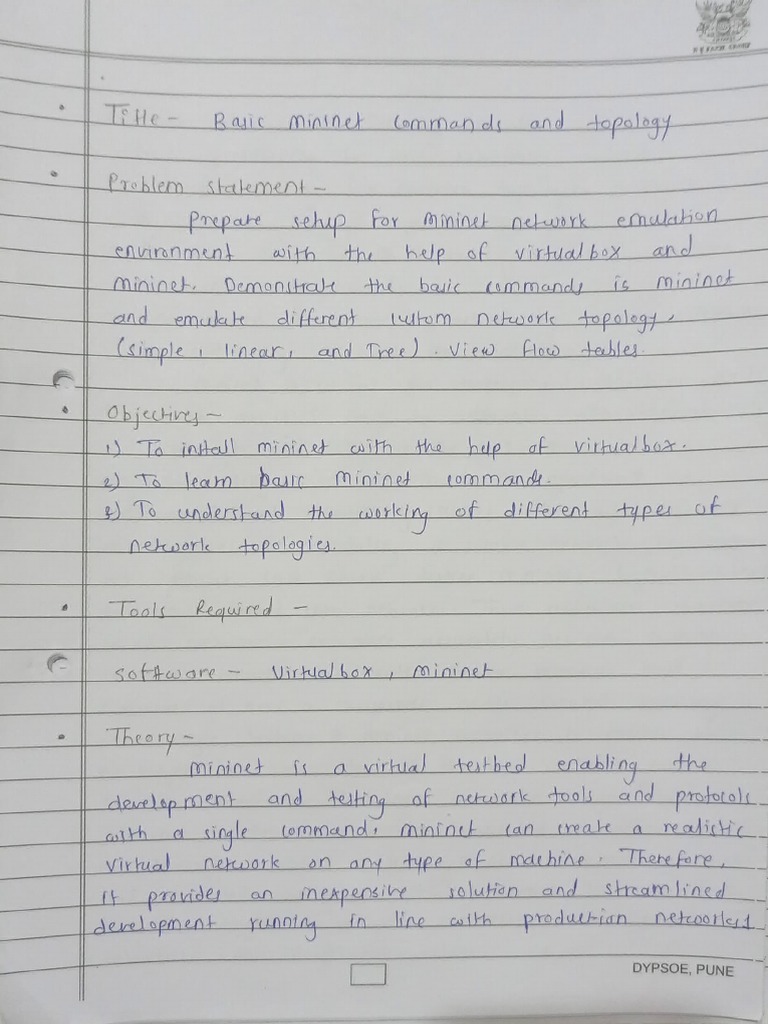 Title - Basic mininet commands and topology
Problem statement -
Prepare setup for mininet network emulation
environment with the help of virtualbox and
mininet. Demonstrate the basic commands is mininet
and emulate different custom network topology.
(simple, linear, and Tree). View flow tables.
Objectives -
1) To install mininet with the help of virtualbox.
2) To learn basic mininet commands.
3) To understand the working of different types of
network topologies.
Tools Required -
software - Virtualbox, mininet
Theory -
mininet is a virtual testbed enabling the
development and testing of network tools and protocols
with a single command, mininet can create a realistic
virtual network on any type of machine. Therefore,
it provides an inexpensive solution and streamlined
development running in line with production networks1
DYPSOE, PUNE